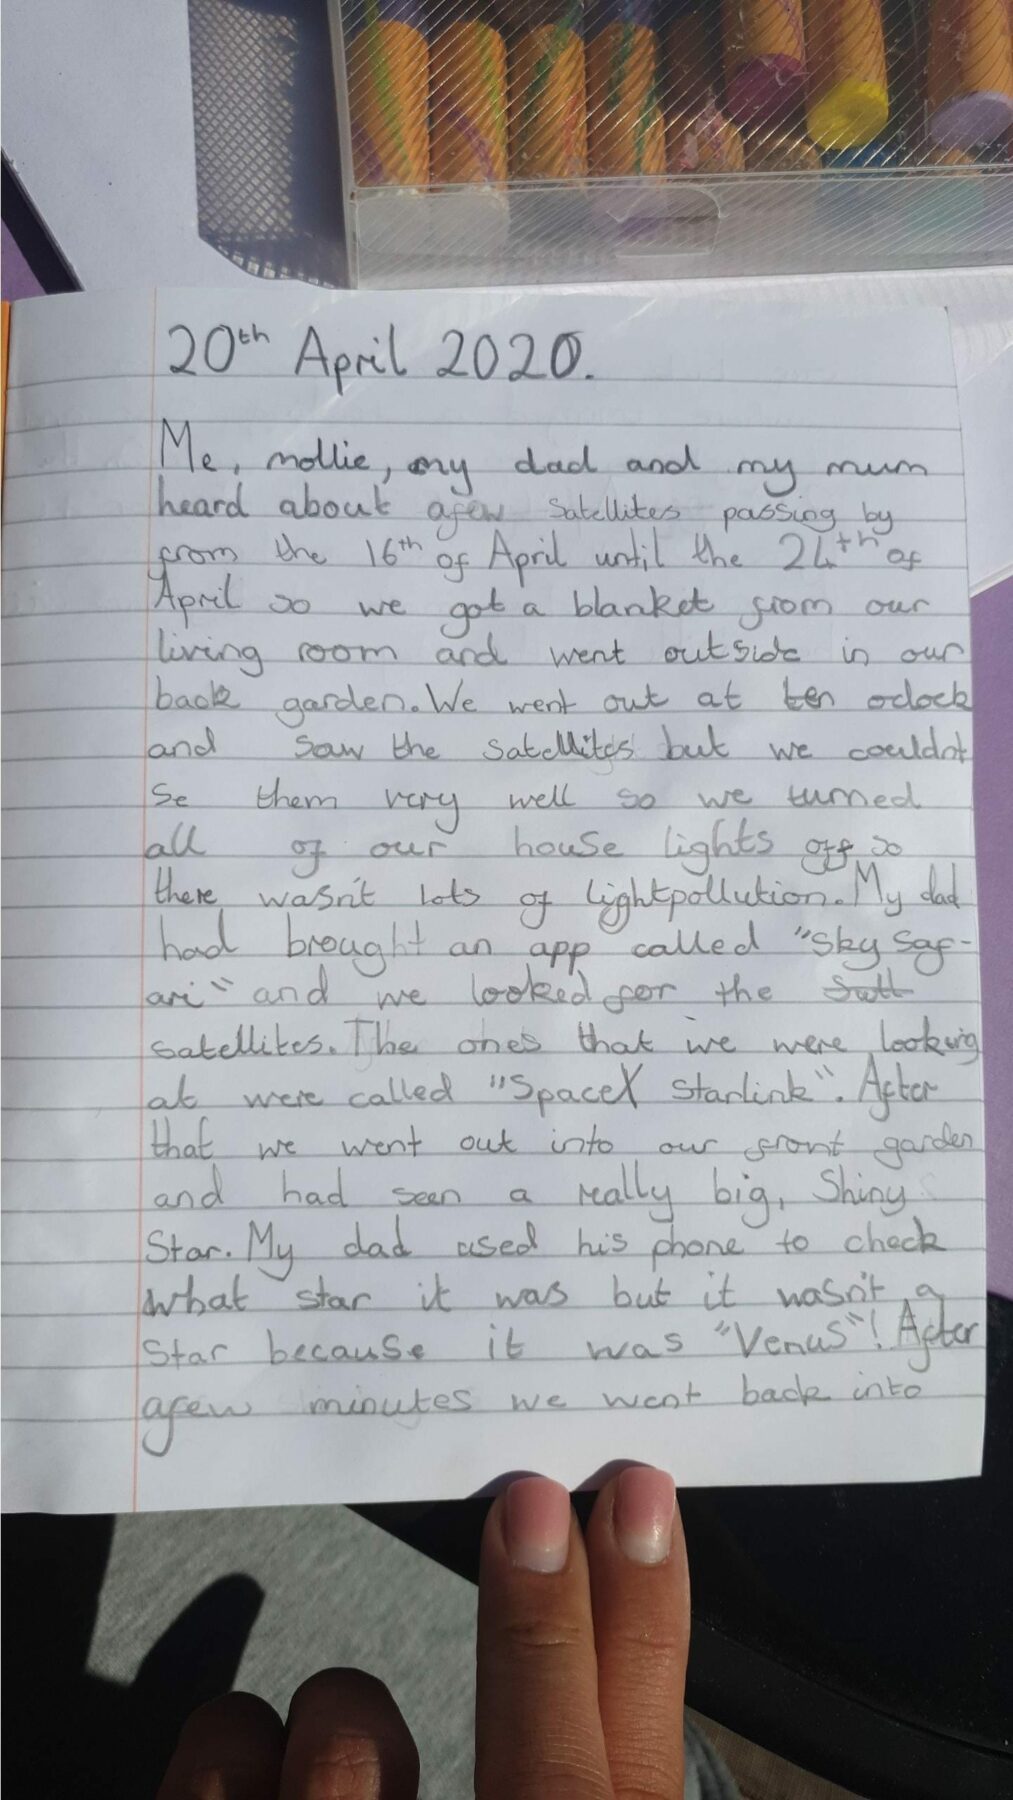 20th April 2020.
Me, mollie, my dad and my mum
heard about afew satellites passing by
from the 16th of April until the 24th of
April so we got a blanket from our
living room and went outside in our
back garden. We went out at ten oclock
and saw the satellites but we couldnt
se them very well so we turned
all of our house lights off so
there wasn't lots of lightpollution. My dad
had brought an app called "Sky Saf-
ari" and we looked for the
satellites. The ones that we were looking
at were called "SpaceX Starlink". After
that we went out into our front garden
and had seen a really big, Shiny
Star. My dad used his phone to check
what star it was but it wasn't a
Star because it was "Venus"! After
afew minutes we went back into